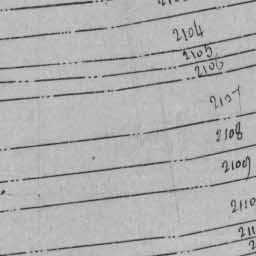 2104
2105
2106
2107
2108
2109
2110
211
2